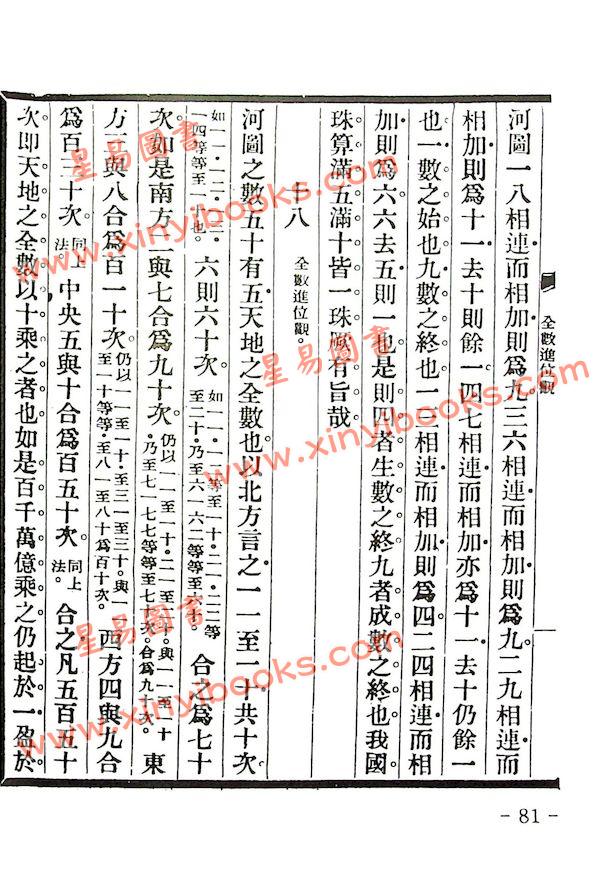 全數進位觀
一
河圖一八相連而相加則爲九三六相連而相加則爲九二九相連而
相加則爲十一去十則餘一四七相連而相加亦爲十一去十仍餘一
也一數之始也九數之終也一三相連而相加則爲四二四相連而相
加則爲六六去五則一也是則四者生數之終九者成數之終也我國
珠算滿五滿十皆一珠厥有旨哉
十八 全數進位觀。
河圖之數五十有五天地之全數也以北方言之一一至一十共十次
如一一。一二。一三。一四等等至一也。六則六十次 如一一。一八。等至一十。二一。二二等至二十。乃至六一六二等等至六十。合之爲七十
次。如是南方二與七合爲九十次。仍以一一至一十。二一至二十。與一一至一十。乃至七一七七等等至七次。合爲九十次。東
方三與八合爲百一十次。仍以一一至一十。至三一至三十。與一一至一十等等。至八一至八十爲百十次。西方四與九合
爲百三十次。同上法。中央五與十合爲百五十次。同上法。合之凡五百五十
次即天地之全數以十乘之者也如是百千萬億乘之仍起於一盈於
- 81 -
星易圖書
www.xinyibooks.com
星易圖書
www.xinyibooks.com
星易圖書
www.xinyibooks.com
星易圖書
www.xinyibooks.com